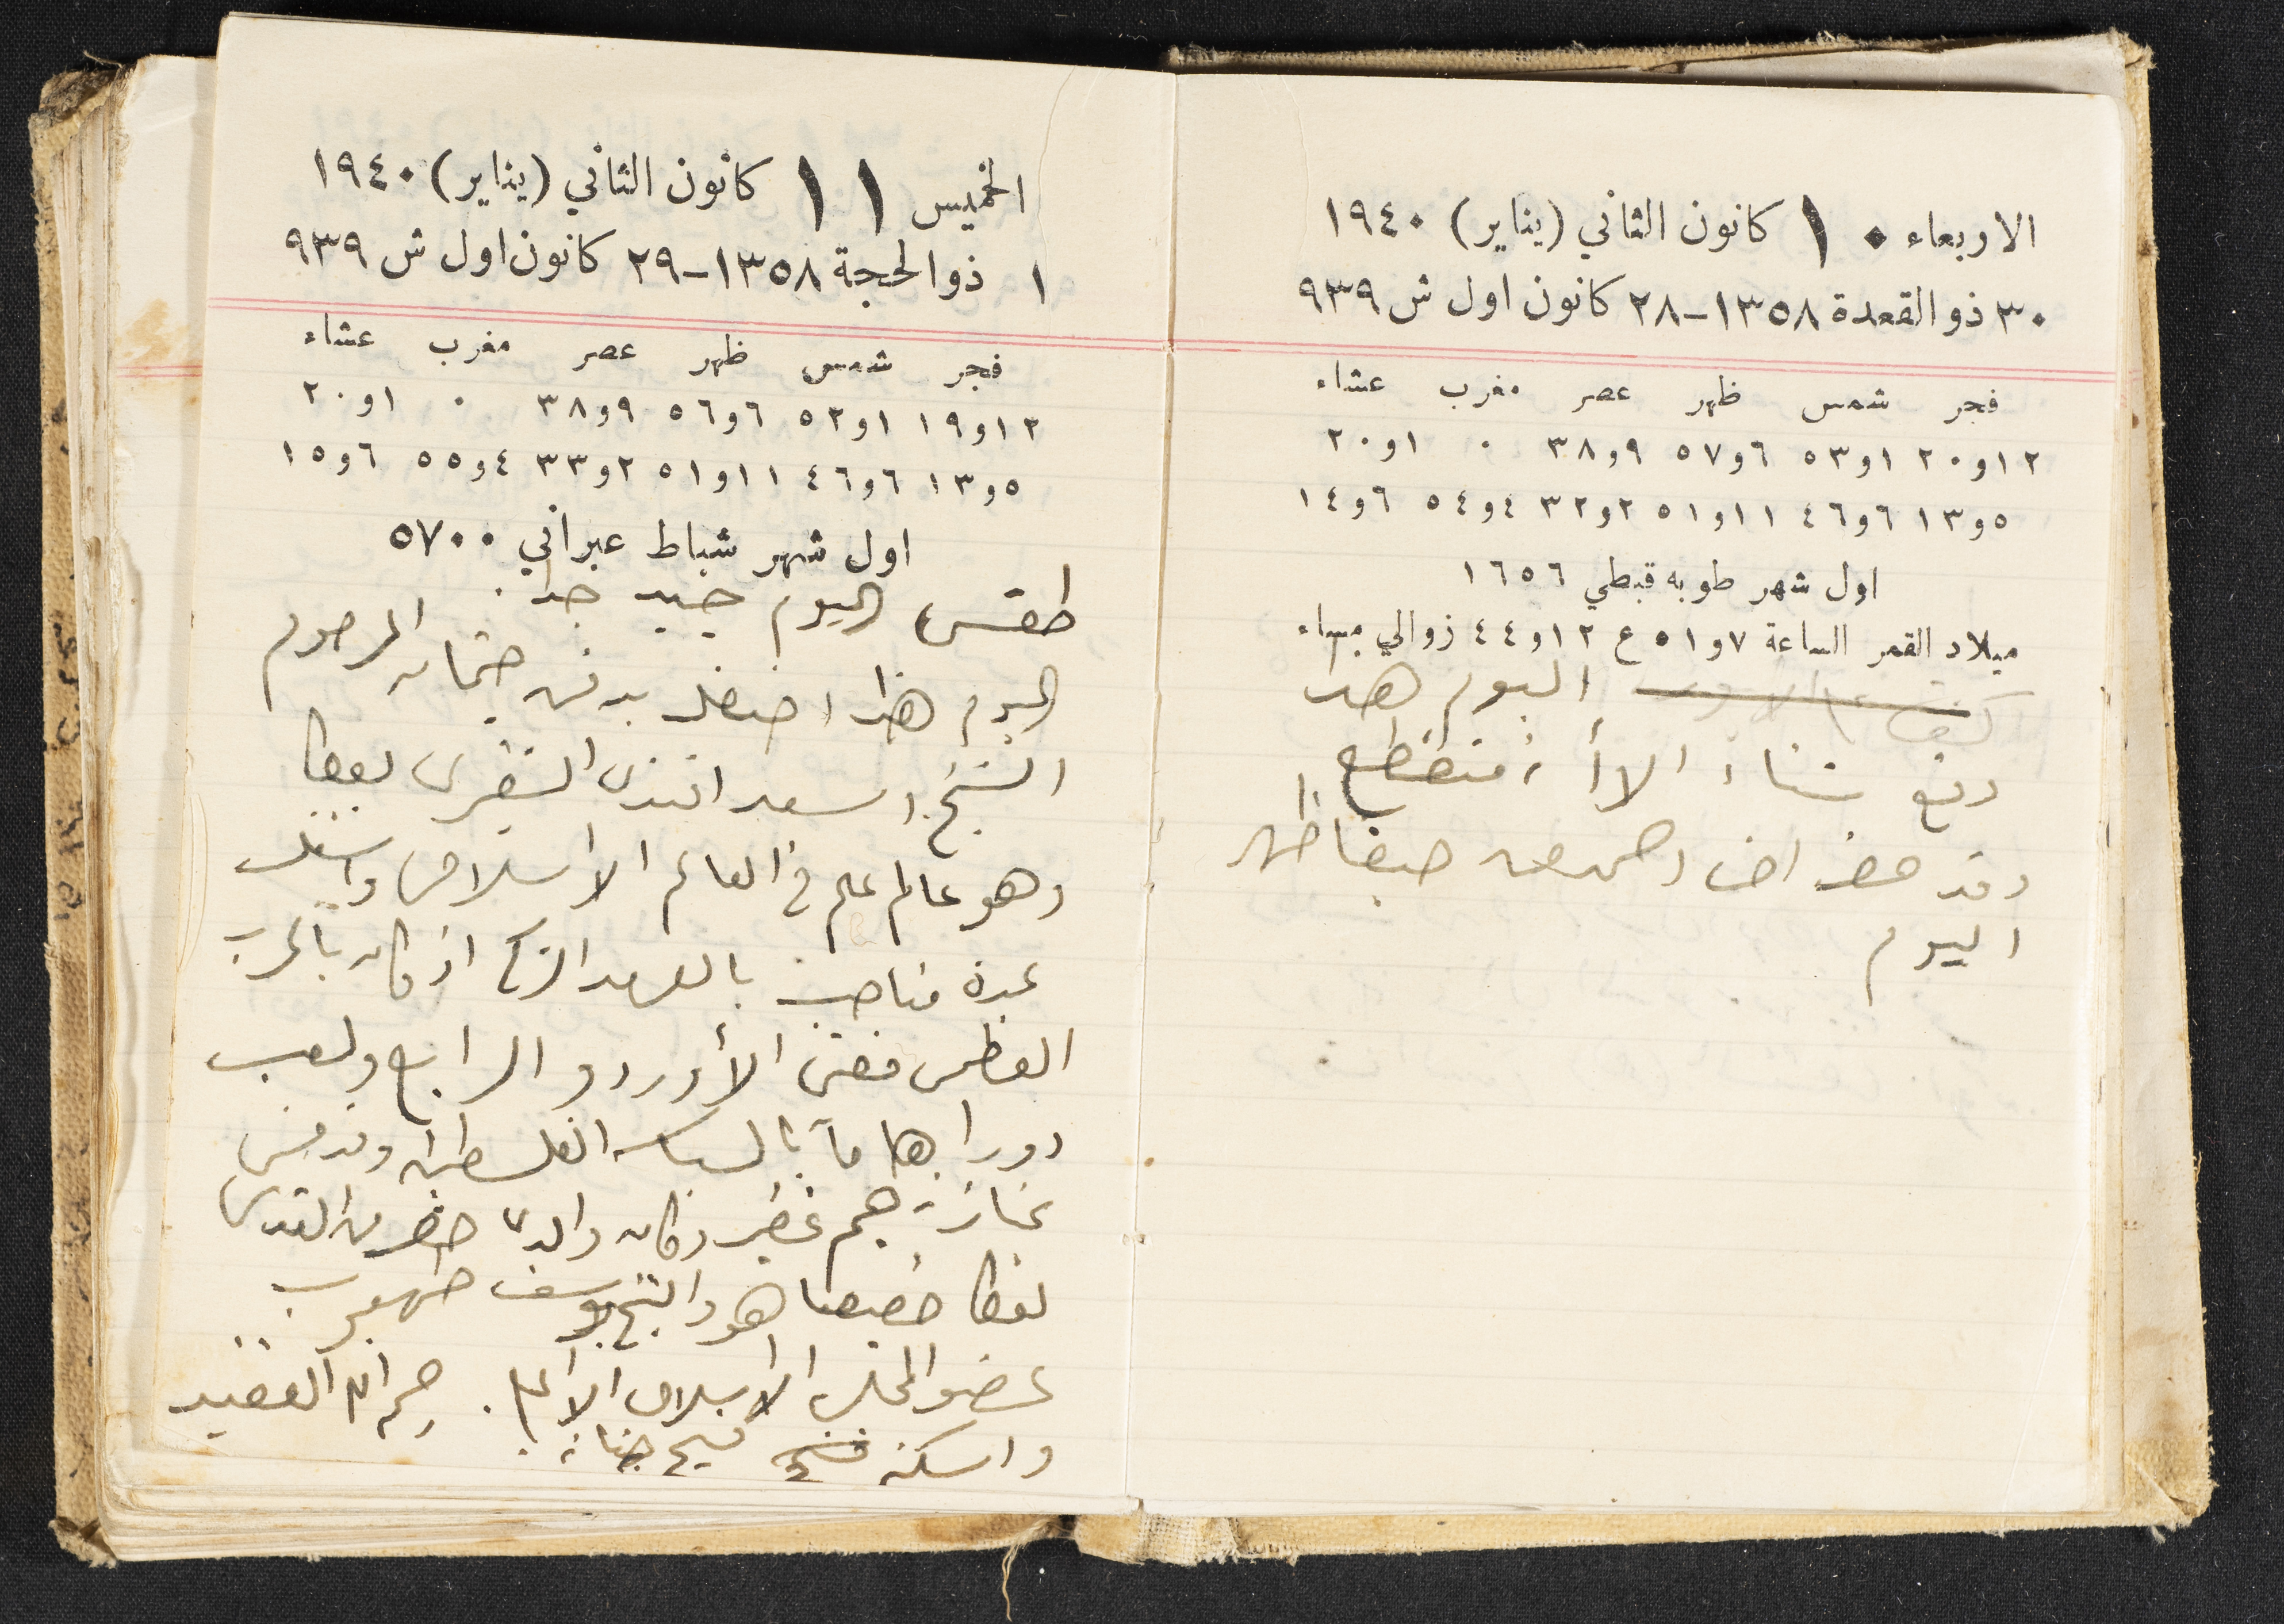 الاربعاء ١٠ كانون الثاني (يناير) ١٩٤٠
٣٠ ذو القعدة ١٣٥٨-٢٨ كانون اول ش ٩٣٩
فجر شمس ظهر عصر مغرب عشاء
١٢و٢٠ ١و٥٣ ٦و٥٧ ٩و٣٨ ٠ ١و٢٠
٥و١٣ ٦و٤٦ ١١و٥١ ٢و٣٢ ٤و٥٤ ٦و١٤
اول شهر طوبه قبطي ١٦٥٦
ميلاد القمر الساعة ٧و٥١ ع ١٢و٤٤ زوالي مساء
اليوم هذا
وقع شتاء الا أنه متقطع
وقد حضر
اليوم
الخميس ١١ كانون الثاني (يناير) ١٩٤٠
١ ذو الحجة ١٣٥٨-٢٩ كانون اول ش ٩٣٩
فجر شمس ظهر عصر مغرب عشاء
١٢و١٩ ١و٥٢ ٦و٥٦ ٩و٣٨ ٠ ١و٢٠
٥و١٣ ٦و٤٦ ١١و٥١ ٢و٣٣ ٤و٥٥ ٦و١٥
اول شهر شباط عبراني ٥٧٠٠
طقس اليوم جيد جدا.
اليوم هذا احتفل بدفن جثمان المرحوم
الشيخ اسعد افندي الشقيري بعكا
وهو عالم علم في العالم الاسلامي واشغل
عدة مناصب بالعهد التركي اذ كان بالحرب
العظمى مفتي الأوردو الرابع ولعب
دورا هاما بالسياسة الفلسطينية وقد مشى
بجنازته جم غفير وكان والدي حضر من القدس
لعكا خصيصا هو والشيخ يوسف طهبوب
عضو المجلس الاسلامي الاعلى. رحم الله الفقيد
واسكنه فسيح جناته.